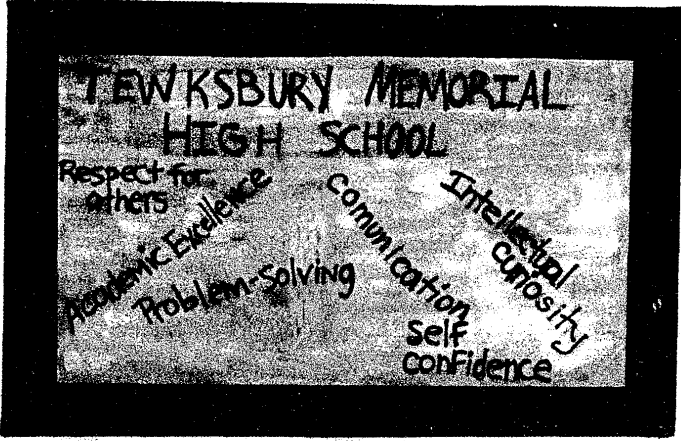 TEWKSBURY MEMORIAL
HIGH SCHOOL
Respect for
others
Academic Excellence
Problem-Solving
Comunication
Intellectual
curiosity
Self
confidence